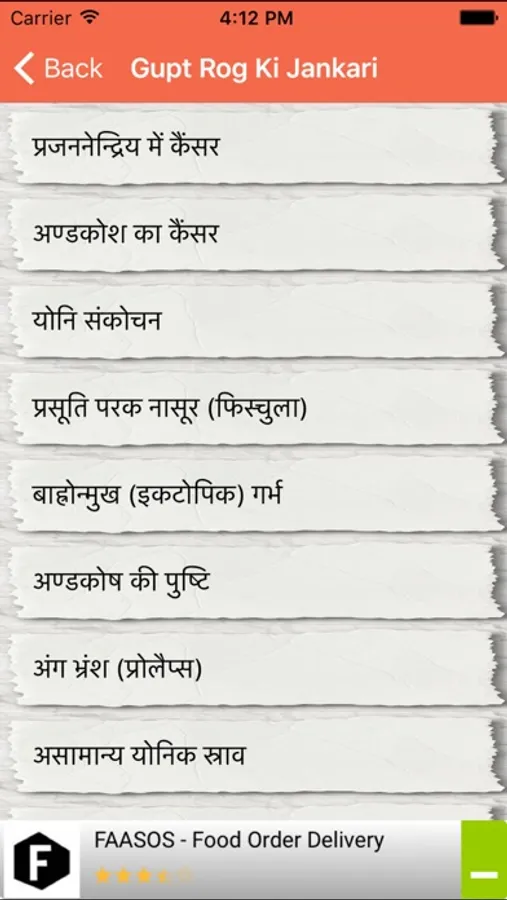 Carrier 4:12 PM
Back Gupt Rog Ki Jankari
प्रजननेन्द्रिय में कैंसर
अण्डकोश का कैंसर
योनि संकोचन
प्रसूति परक नासूर (फिस्चुला)
बाह्रोन्मुख (इकटोपिक) गर्भ
अण्डकोष की पुष्टि
अंग भ्रंश (प्रोलैप्स)
असामान्य योनिक स्राव
F
FAASOS - Food Order Delivery